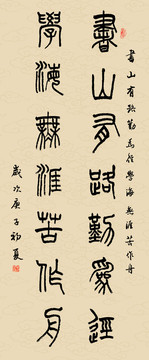 書山有路勤為徑
學海無涯苦作舟
書山有路勤為徑學海無涯苦作舟
歲次庚子初夏